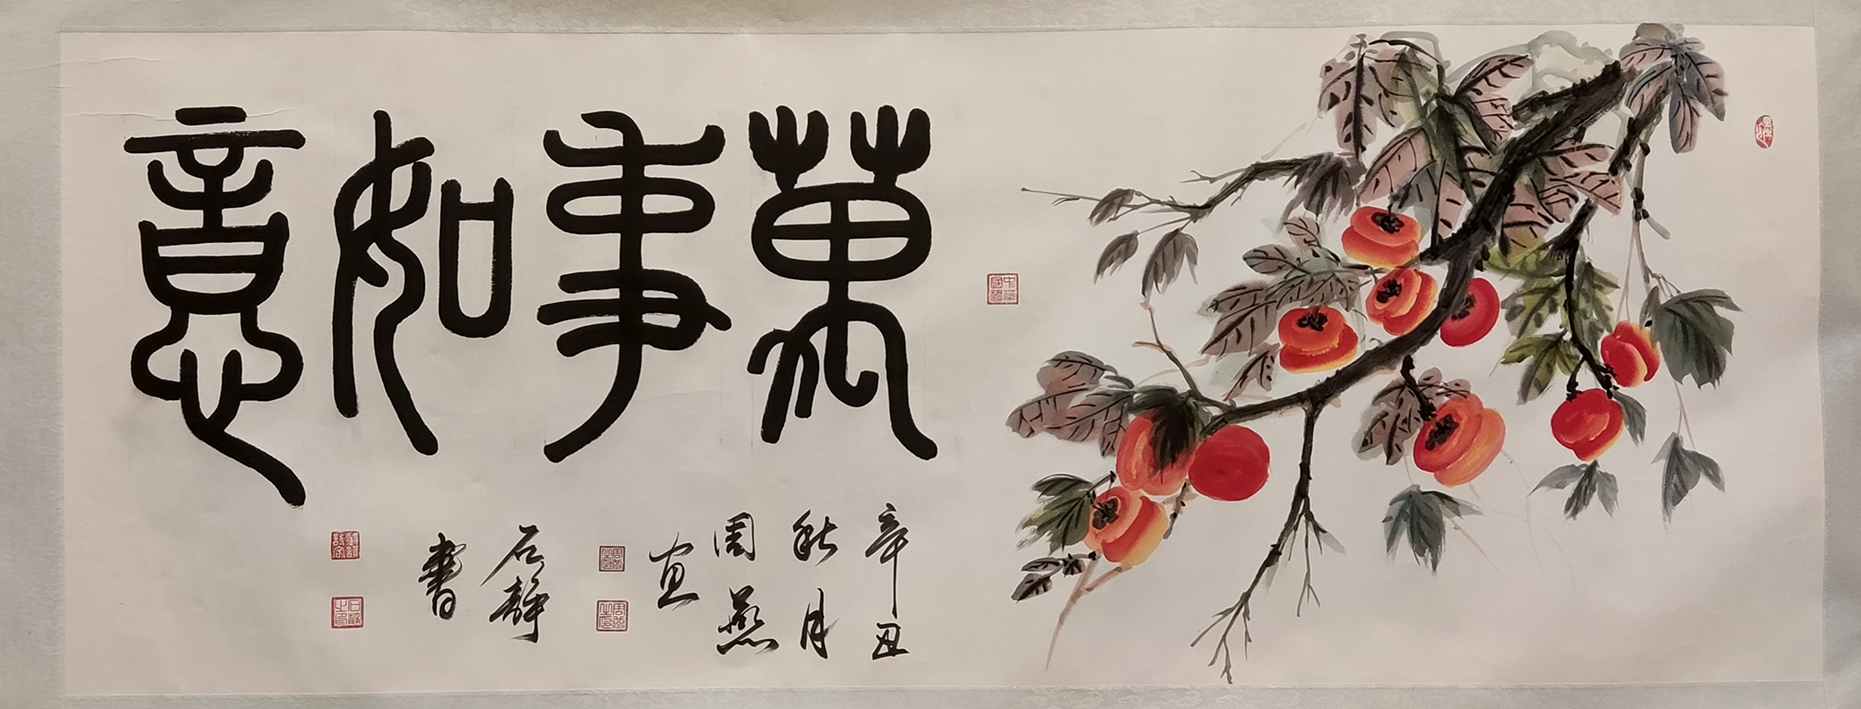 萬事如意
辛丑
秋月
周燕
画
石靜
書